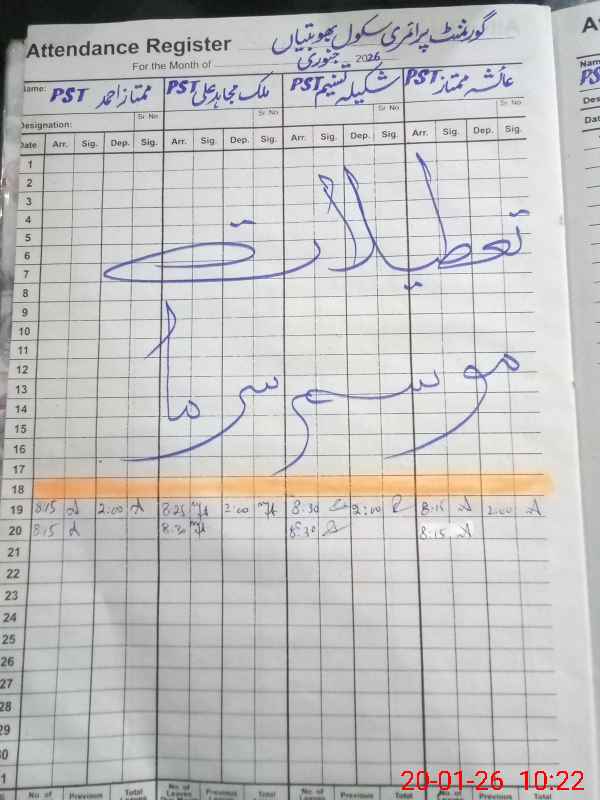 گورنمنٹ پرائمری سکول بھوبتیاں
Attendance Register
For the Month of جنوری 2026
Name: PST ممتاز احمد PST ملک مجاہد علی PST شکیلہ تسنیم PST عائشہ ممتاز
Sr No Sr No Sr No Sr No
Designation:
Date Arr. Sig. Dep. Sig. Arr. Sig. Dep. Sig. Arr. Sig. Dep. Sig. Arr. Sig. Dep. Sig.
1
2
3
4
5
تعطیلات
6
7
8
9
10
11
12
موسم سرما
13
14
15
16
17
18
19 8:15 2:00 8:25 2:00 8:30 2:00 8:15 2:00
20 8:15 8:30 8:30 8:15
21
22
23
24
25
26
27
28
29
30
31
No. of Previous Total No. of Leaves Previous Total No. of Leaves Previous Total No. of Previous Total
20-01-26 10:22